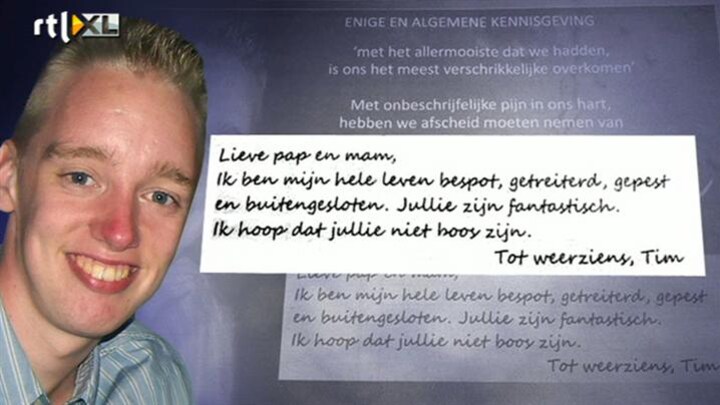 rtl XL
ENIGE EN ALGEMENE KENNISGEVING
'met het allermooiste dat we hadden,
is ons het meest verschrikkelijke overkomen'
Met onbeschrijfelijke pijn in ons hart,
hebben we afscheid moeten nemen van
Lieve pap en mam,
Ik ben mijn hele leven bespot, getreiterd, gepest
en buitengesloten. Jullie zijn fantastisch.
Ik hoop dat jullie niet boos zijn.
Tot weerziens, Tim
Lieve pap en mam,
Ik ben mijn hele leven bespot, getreiterd, gepest
en buitengesloten. Jullie zijn fantastisch.
Ik hoop dat jullie niet boos zijn.
Tot weerziens, Tim